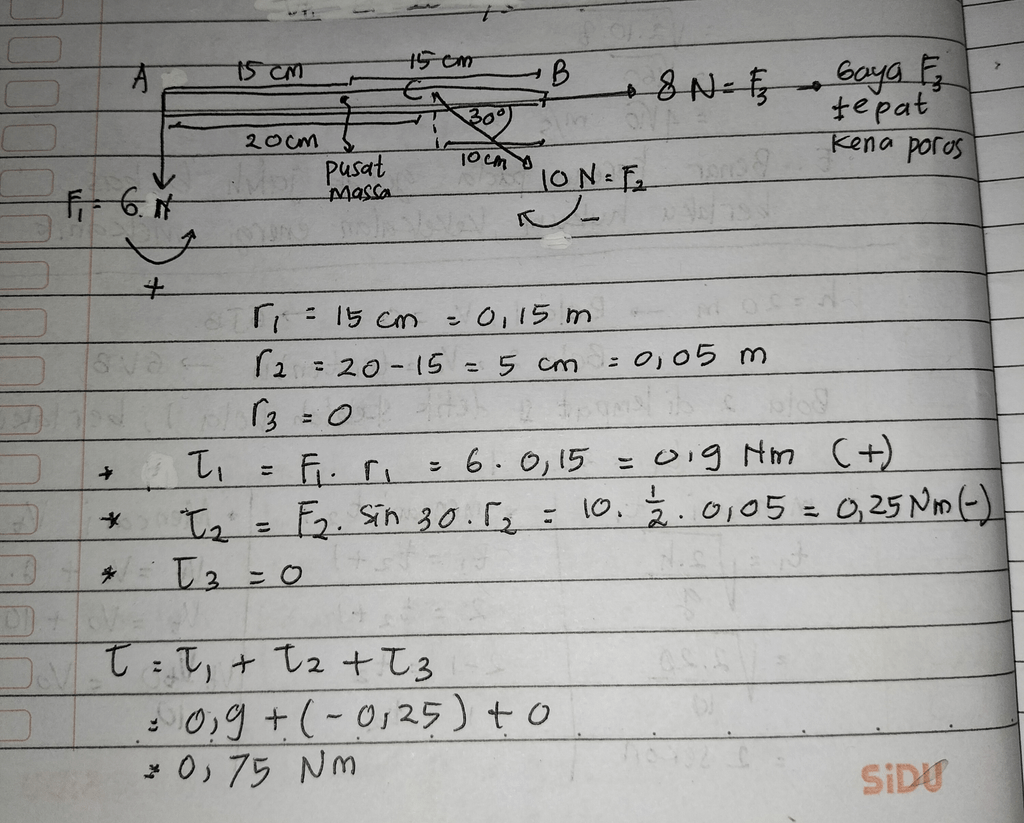 A 15 cm 15 cm B
C 30° 8 N = F₃ → Gaya F₃
tepat
kena poros
20 cm 10 cm
pusat
massa
F₁ = 6 N 10 N = F₂
+ −
r₁ = 15 cm = 0,15 m
r₂ = 20 - 15 = 5 cm = 0,05 m
r₃ = 0
* τ₁ = F₁ . r₁ = 6 . 0,15 = 0,9 Nm (+)
* τ₂ = F₂ . sin 30 . r₂ = 10 . 1/2 . 0,05 = 0,25 Nm (-)
* τ₃ = 0
τ = τ₁ + τ₂ + τ₃
= 0,9 + (-0,25) + 0
= 0,75 Nm
SiDU